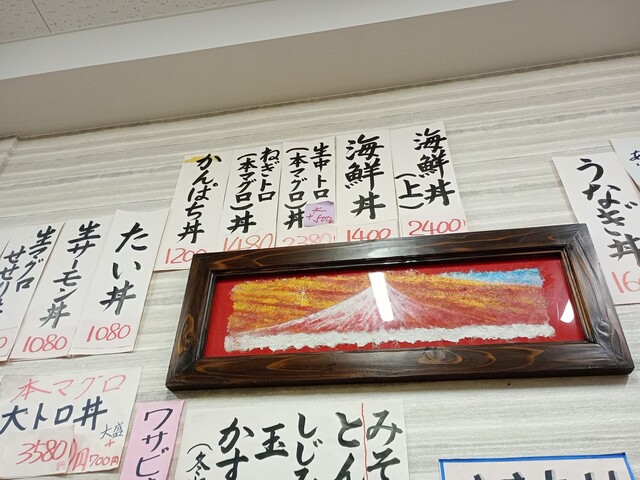 海鮮丼
(上)
2400
海鮮丼
1400
生中トロ
(本マグロ)丼
2380
大
+500
ねぎトロ
(本マグロ)丼
1480
かんぱち丼
1200
たい丼
1080
生サーモン丼
1080
生マグロ
うなぎ丼
本マグロ
大トロ丼
3580円
大盛
+
700円
ワサビ
みそ
とん
しじみ
玉
かす